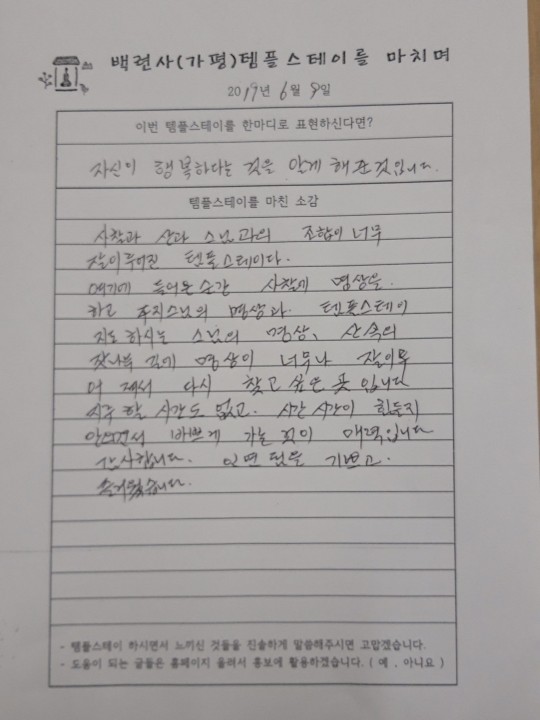 백련사(가평)템플스테이를 마치며
2019년 6월 9일
이번 템플스테이를 한마디로 표현하신다면?
자신이 행복하다는 것을 알게 해준것입니다.
템플스테이를 마친 소감
사찰과 산과 스님과의 조합이 너무
잘이루어진 템플스테이다.
여기에 들어온순간 사찰에 명상을
하고 주지스님의 명상과. 템플스테이
지도하시는 스님의 명상, 산속의
잣나무 길에 명상이 너무나 잘이루
어 져서 다시 찾고 싶은 곳 입니다
지루 할 시간도 없고. 시간 시간이 힘들지
안으면서 바쁘게 가는 것이 매력입니다
감사합니다. 인연 됨을 기쁘고.
즐거웠습니다.
- 템플스테이 하시면서 느끼신 것들을 진솔하게 말씀해주시면 고맙겠습니다.
- 도움이 되는 글들은 홈페이지 올려서 홍보에 활용하겠습니다. ( 예 , 아니요 )